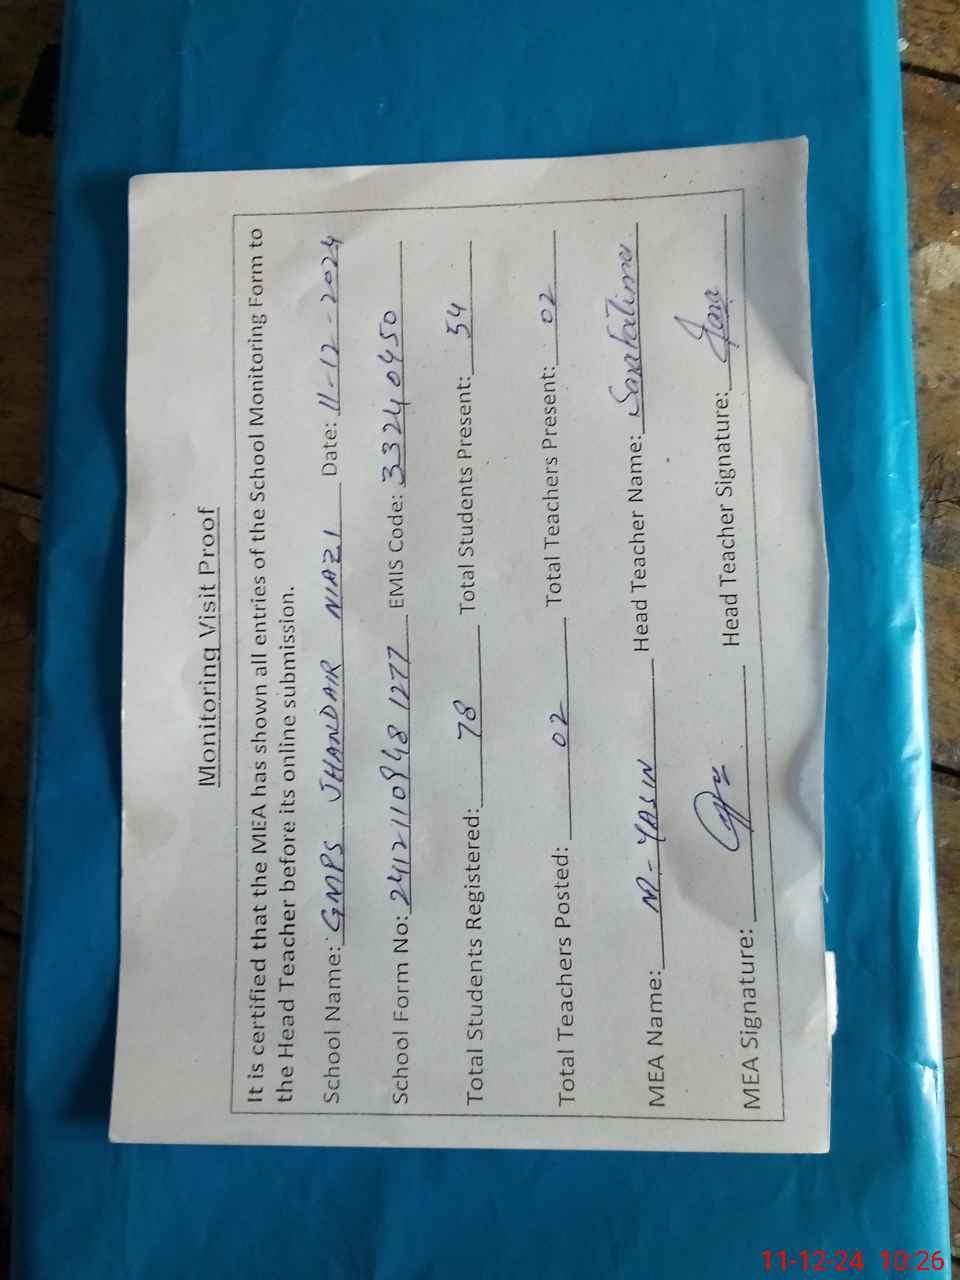 Monitoring Visit Proof
It is certified that the MEA has shown all entries of the School Monitoring Form to
the Head Teacher before its online submission.
School Name: GMPS JHANDAIR NIAZI Date: 11-12-2024
School Form No: 24121109481277 EMIS Code: 33240450
Total Students Registered: 78 Total Students Present: 54
Total Teachers Posted: 02 Total Teachers Present: 02
MEA Name: YASIN Head Teacher Name:
MEA Signature: Head Teacher Signature:
11-12-24 10:26